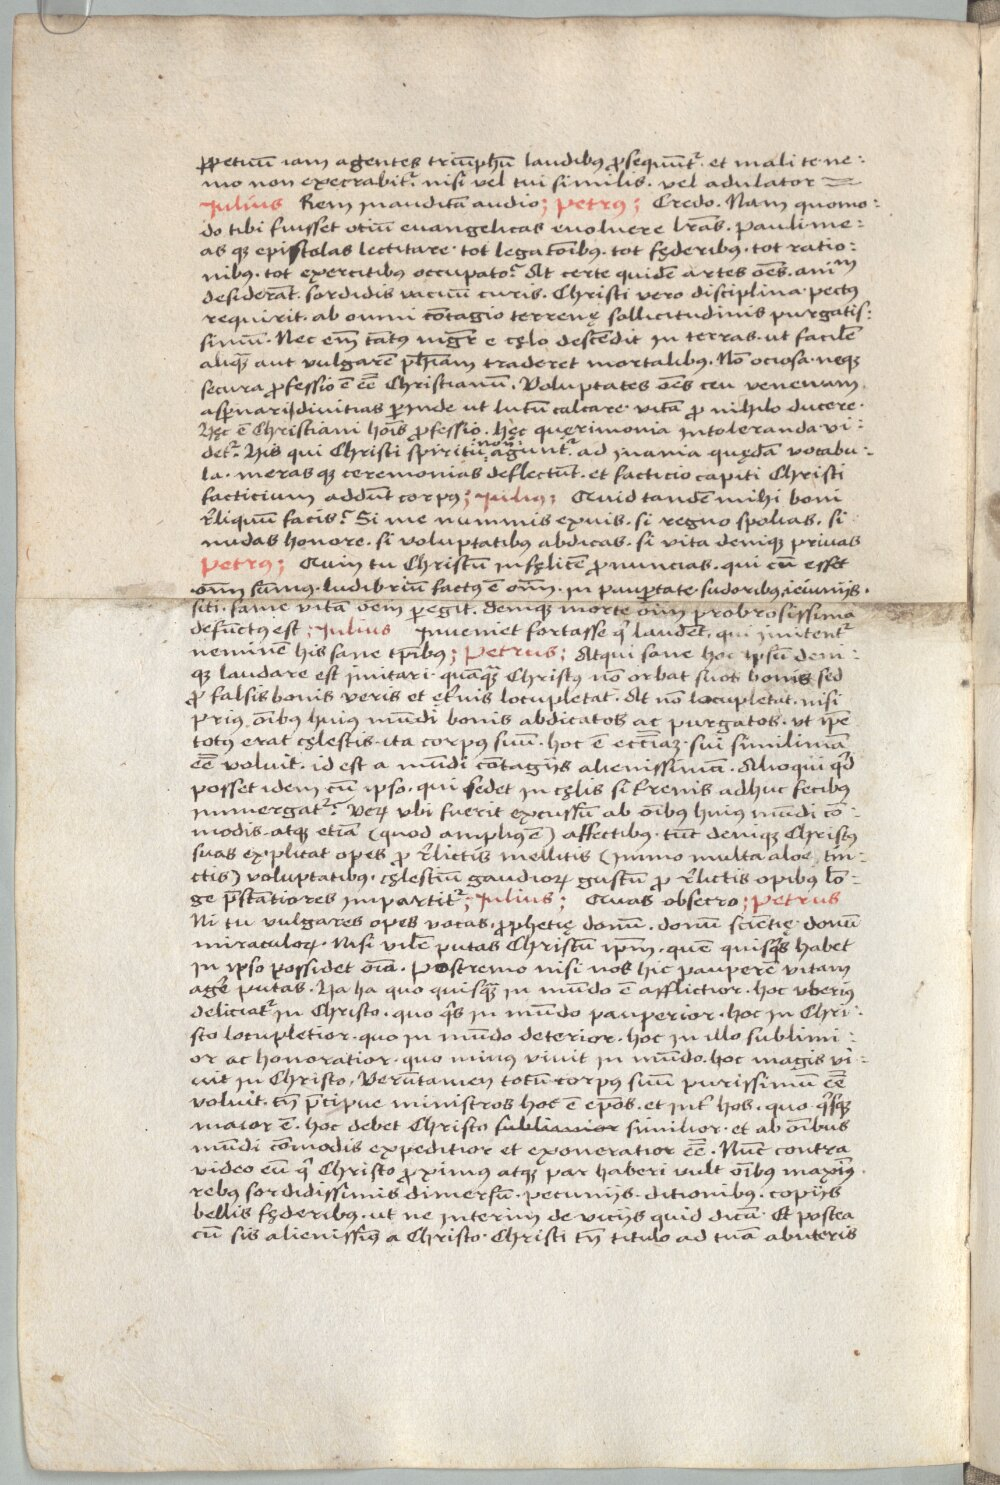 ꝑpetuū iam agentes triūphū laudibꝰ ꝓsequūt᷑. et mali te ne:
mo non execrabit᷑. nisi vel tui similis. vel adulator
Julius Rem inauditā audio; Petrꝰ; Credo. Nam quomo:
do tibi fuisset otiū euangelicas euoluere lr̄as. Pauli me:
as qꝫ epistolas lectitare. tot legatōibꝰ. tot fęderibꝰ. tot ratio:
nibꝰ. tot exercitibꝰ occupato? At certe quidē artes oēs. animm
desiderāt. sordidis vacuū curis. Christi vero disciplina. pectꝰ
requirit. ab omni cōtagio terrenę sollicitudinis purgatis:
simū. Nec em̄ tātꝰ mgr̄ e cęlo descēdit in terras. ut facilē
aliqᷓ aut vulgarē ph̄iam traderet mortalibꝰ. Nō ociosa. neqꝫ
secura ꝓfessio ē eē̄ Christianū. Voluptates oēs ceu venenum
asꝑnari, diuitias ꝑinde ut lutū calcare. vitā ꝓ nihilo ducere.
Hęc ē Christiani hoīs ꝓfessio. Hęc quęrimonia intoleranda vi:
det᷑. His qui Christi spiritu nō agunt᷑. ad inania quędā vocabu:
la. meras qꝫ ceremonias deflectūt. et facticio capiti Christi
facticium addūt corpꝰ; Juliꝰ; Quid tandē mihi boni
r̄liquū facis? Si me nummis exuis. si regno spolias. si
nudas honore. si voluptatibꝰ abdicas. si vita deniqꝫ priuas
Petrꝰ; Quin tu Christū infęlicē ꝓnuncias. qui cū esset
oīm sūmꝰ. ludibriū factꝰ ē oīm. in pauꝑtate. sudoribꝰ. ieiunijs.
siti. fame vitā oēm ꝑegit. deniqꝫ morte oīm probrosissima
defūctꝰ est; Julius Inueniet fortasse qͥ laudēt. qui imitent᷑
neminē his sane tp̄ibꝰ; Petrus; Atqui sane hoc ipsū deni:
qꝫ laudare est imitari. quāqᷓ Christꝰ nō orbat suos bonis sed
ꝓ falsis bonis veris et ęt̄nis locupletat. At nō locupletat. nisi
priꝰ oībꝰ huiꝰ mūdi bonis abdicatos ac purgatos. Vt ip̄e
totꝰ erat cęlestis. ita corpꝰ suū. hoc ē eccl̄iaꝫ. sui similimā
eē̄ voluit. id est a mūdi cōtagijs alienissimā. Alioqui qͥd
posset idem cū ipso. qui sedet in cęlis si t̄renis adhuc fecibꝰ
immergat᷑? Veꝝ vbi fuerit excussū ab oībꝰ huiꝰ mūdi cō:
modis. atqꝫ etiā (quod ampliꝰ ē) affectibꝰ. tūc deniqꝫ Christꝰ
suas explicat opes ꝓ r̄lictis mellitis (immo multa aloe tin:
ctis) voluptatibꝰ. cęlestiū gaudioꝝ gustū ꝓ r̄lictis opibus lō:
ge p̄stātiores impartit᷑; Julius; Quas obsecro; Petrus
Ni tu vulgares opes vocas. ꝓphetię donū. donū sciētię. donū
miraculoꝝ. Nisi vilē putas Christū ip̄m. quē quisqͥs habet
in ipso possidet oīa. Postremo nisi nos hic pauperē vitam
agr̄e putas. Ha ha quo quisqᷓ in mūdo ē afflictior. hoc vberiꝰ
deliciat᷑ in Christo. quo qͥs in mūdo pauperior. hoc in Chri:
sto locupletior. quo in mūdo deterior. hoc in illo sublimi:
or ac honoratior. quo minꝰ viuit in mūdo. hoc magis vi:
uit in Christo. Verūtamen totū corpꝰ suū purissimū eē̄
voluit. tū p̄cipue ministros hoc ē ep̄os. et int̄ hos. quo qͥsqꝫ
maior ē. hoc debet Christo similior. et ab oībus
mūdi cōmodis expeditior et exoneratior eē̄. Nūc contra
video eū qͥ Christo ꝓximus atqꝫ par haberi vult oībus maxīꝰ.
rebꝰ sordidissimis dimersū. pecunijs. ditionibꝰ. copijs
bellis fęderibꝰ. ut ne interim de vicijs quid dicā. Et postea
cū sis alienissīꝰ a Christo. Christi tn̄ titulo ad tuā abuteris